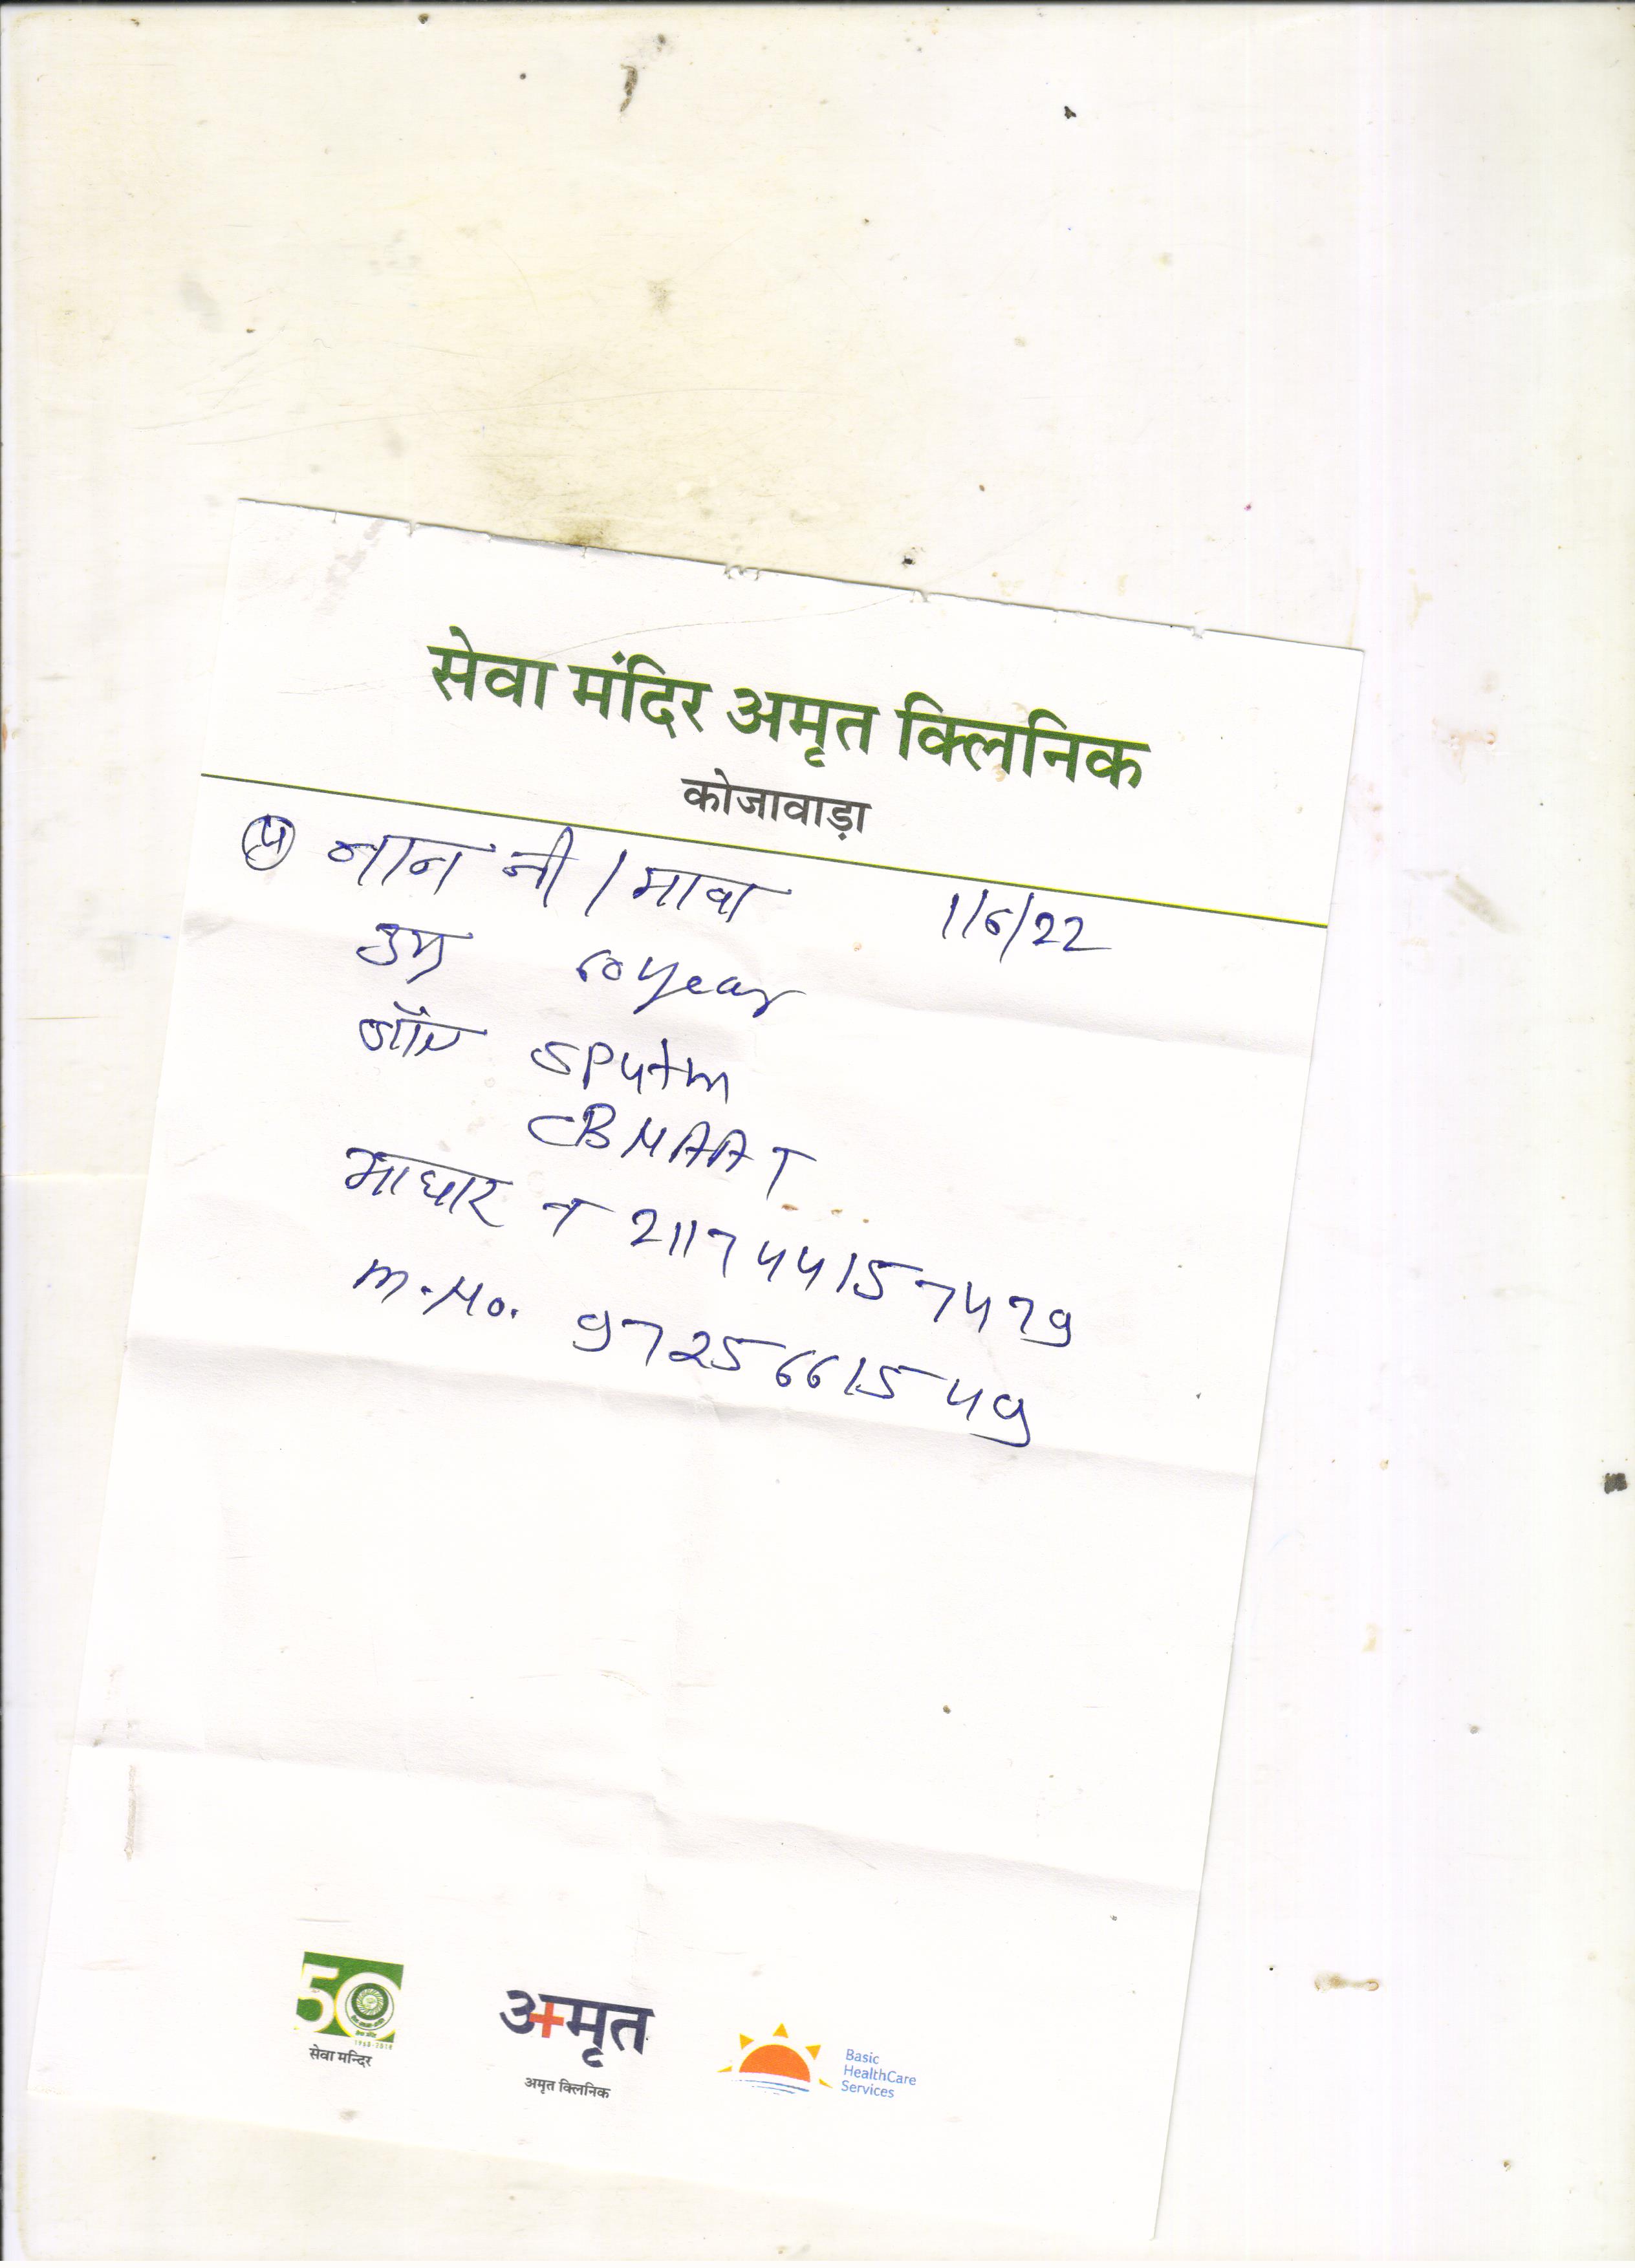 सेवा मंदिर अमृत क्लिनिक
कोजावाड़ा
नान जी / मावा 1/6/22
उम्र 60 year
जाँच Sputm
CBNAAT
आधार न 211744157479
M.No. 9725661549
50
1968-2018
सेवा मन्दिर
अमृत
अमृत क्लिनिक
Basic
HealthCare
Services